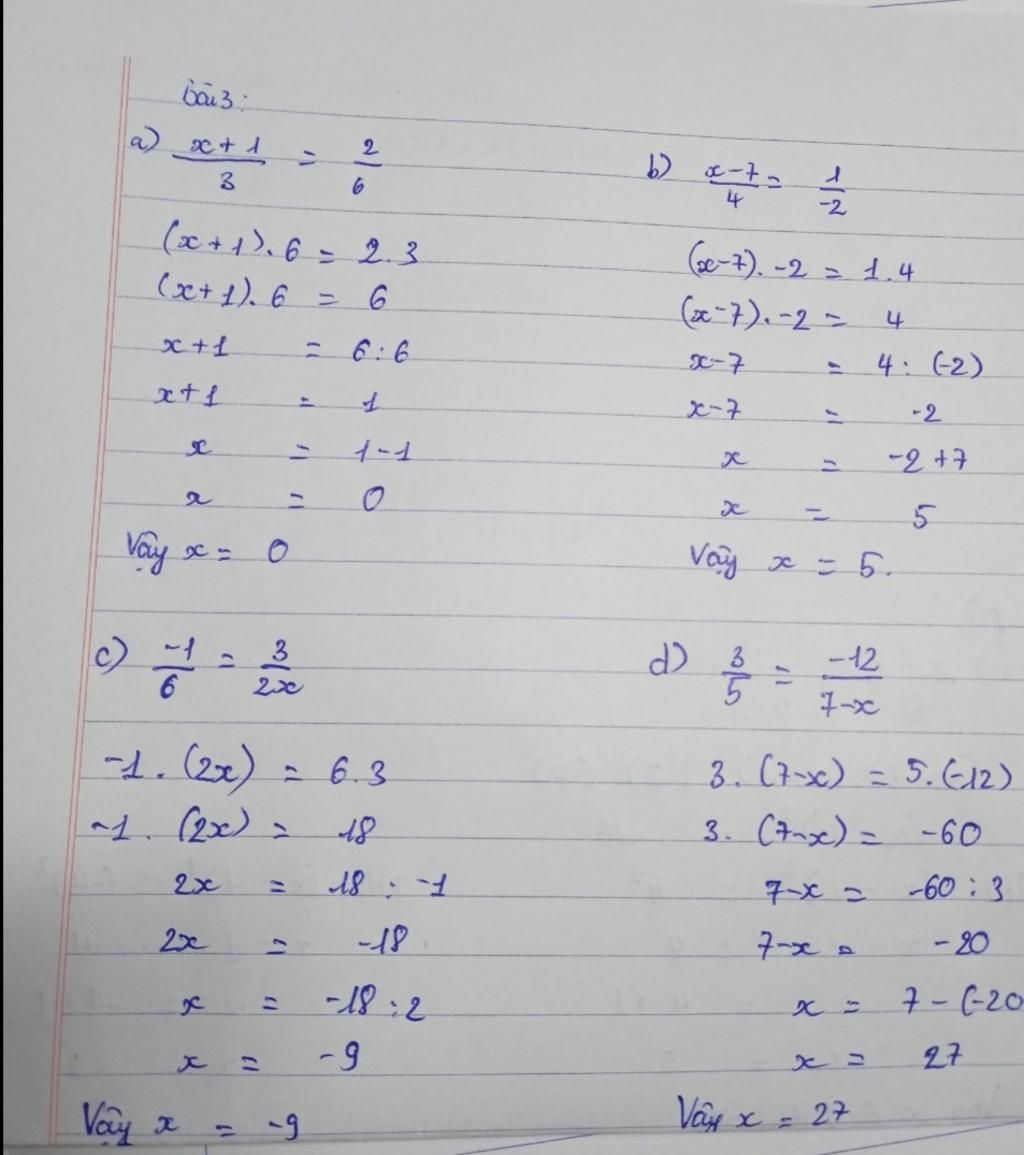 bài 3:
a) x+1/3 = 2/6
(x+1).6 = 2.3
(x+1).6 = 6
x+1 = 6:6
x+1 = 1
x = 1-1
x = 0
Vậy x = 0
b) x-7/4 = 1/-2
(x-7).-2 = 1.4
(x-7).-2 = 4
x-7 = 4: (-2)
x-7 = -2
x = -2+7
x = 5
Vậy x = 5.
c) -1/6 = 3/2x
-1. (2x) = 6.3
-1. (2x) = 18
2x = 18 : -1
2x = -18
x = -18:2
x = -9
Vậy x = -9
d) 3/5 = -12/7-x
3. (7-x) = 5.(-12)
3. (7-x) = -60
7-x = -60:3
7-x = -20
x = 7-(-20
x = 27
Vậy x = 27